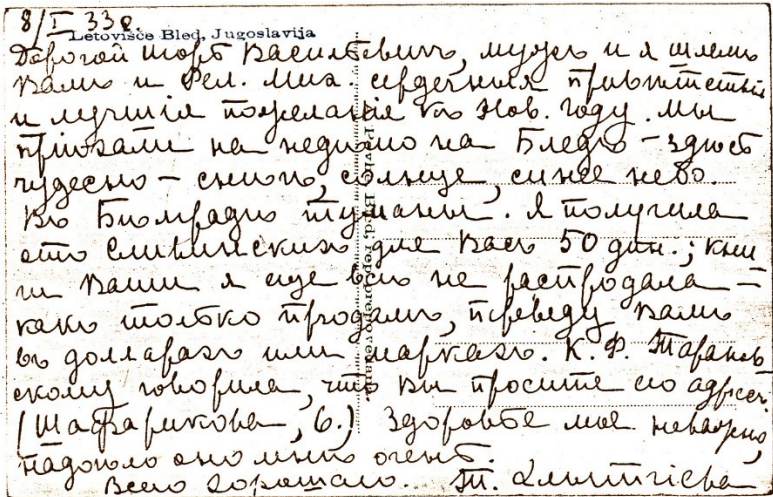 8/I 33 г.
Letovišče Bled, Jugoslavija
Дорогой Васильевичъ, мужъ и я шлемъ
Вамъ и Мих. сердечныя привѣтствія
и лучшія пожеланія къ Нов. Году. Мы
пріѣхали на недѣлю на Бледъ – здѣсь
чудесно – снѣгъ, солнце, синее небо.
Въ Бѣлградѣ туманы. Я получила
отъ для Васъ 50 дин.; кни
ги Ваши я еще всѣ не распродала –
какъ только продамъ, переведу Вамъ
въ долларахъ или маркахъ. К. Ф. Таранов
скому говорила, что Вы просите его адресъ
(Шафарикова, 6.) Здоровье мое неважно,
надоѣло оно мнѣ очень.
Всего хорошаго. Т.